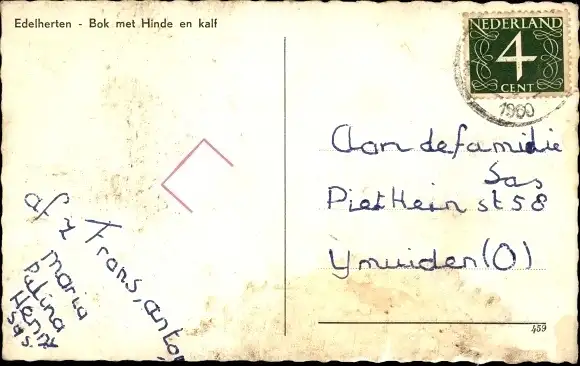 Edelherten - Bok met Hinde en kalf
NEDERLAND
4
CENT
1960
Aan de familie
Sas
Piet Hein st 58
Ymuiden (O)
af z Frans, anton,
Maria
Paulina
Henny
Sas.
459